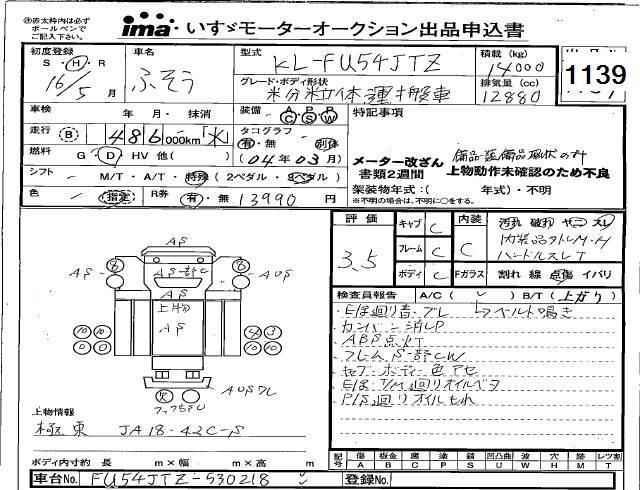 ※赤太枠内は必ず
ボールペンで
ご記入下さい。
ima いすゞモーターオークション出品申込書
初度登録 車名 型式 積載 (kg)
S・H・R
16/5月 ふそう KL-FU54JTZ 14000
グレード・ボディ形状 排気量 (cc)
粉粒体運搬車 12880
1139
車検 年 月・ 抹消 装備 A C P S P W 特記事項
走行 B 486 000km
タコグラフ 有・無 別体
燃料 G・D・HV 他( ) (04年03月)
メーター改ざん
書類2週間 上物動作未確認のため不良
架装物年式:( 年式)・不明
※不明の場合は、不明に○をする。
シフト - M/T・A/T・特殊 (2ペダル・3ペダル)
色 (指定) R券 有・無 13990 円
評価 3.5
キャブ C 内装 C 汚れ 破れ ヤニ スレ
フレーム C
ハンドルスレ
ボディ C Fガラス 割れ 線 点傷 イバリ
検査員報告 A/C ( ) B/T (上がり)
E/G廻り音・ブレ ベルト鳴き
カンバン消しP
ABS点灯
フレームS一部CW
キャブ ボディー色アセ
E/G T/M廻りオイルベタ
P/S廻りオイルもれ
AS
8 8
AS AUS
AS一部C
AS
上物
AS
10 10 4 3
10 10 10 10
AUSワレ
上物情報
極東 JA18-42C-S
ボディ内寸約 長 m×幅 m×高 m
記号 傷 板金 腐 塗装 錆 凹凸曲 波 穴 跡 レツ割
A B C P S U W H M T
車台No. FU54JTZ-530218 登録No.